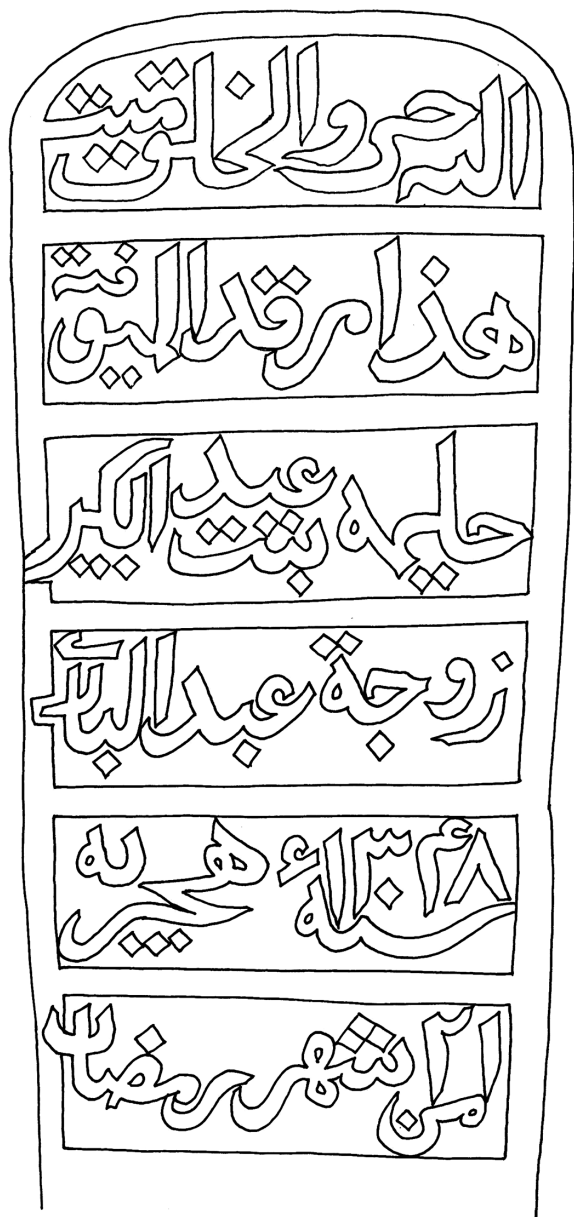 الله حي والخلق ميت
هذا مرقد
حليمه بنت عبد الكبير
زوجة عبد
سنة ١٣۴٨ هجريه
٢١ من شهر رمضان